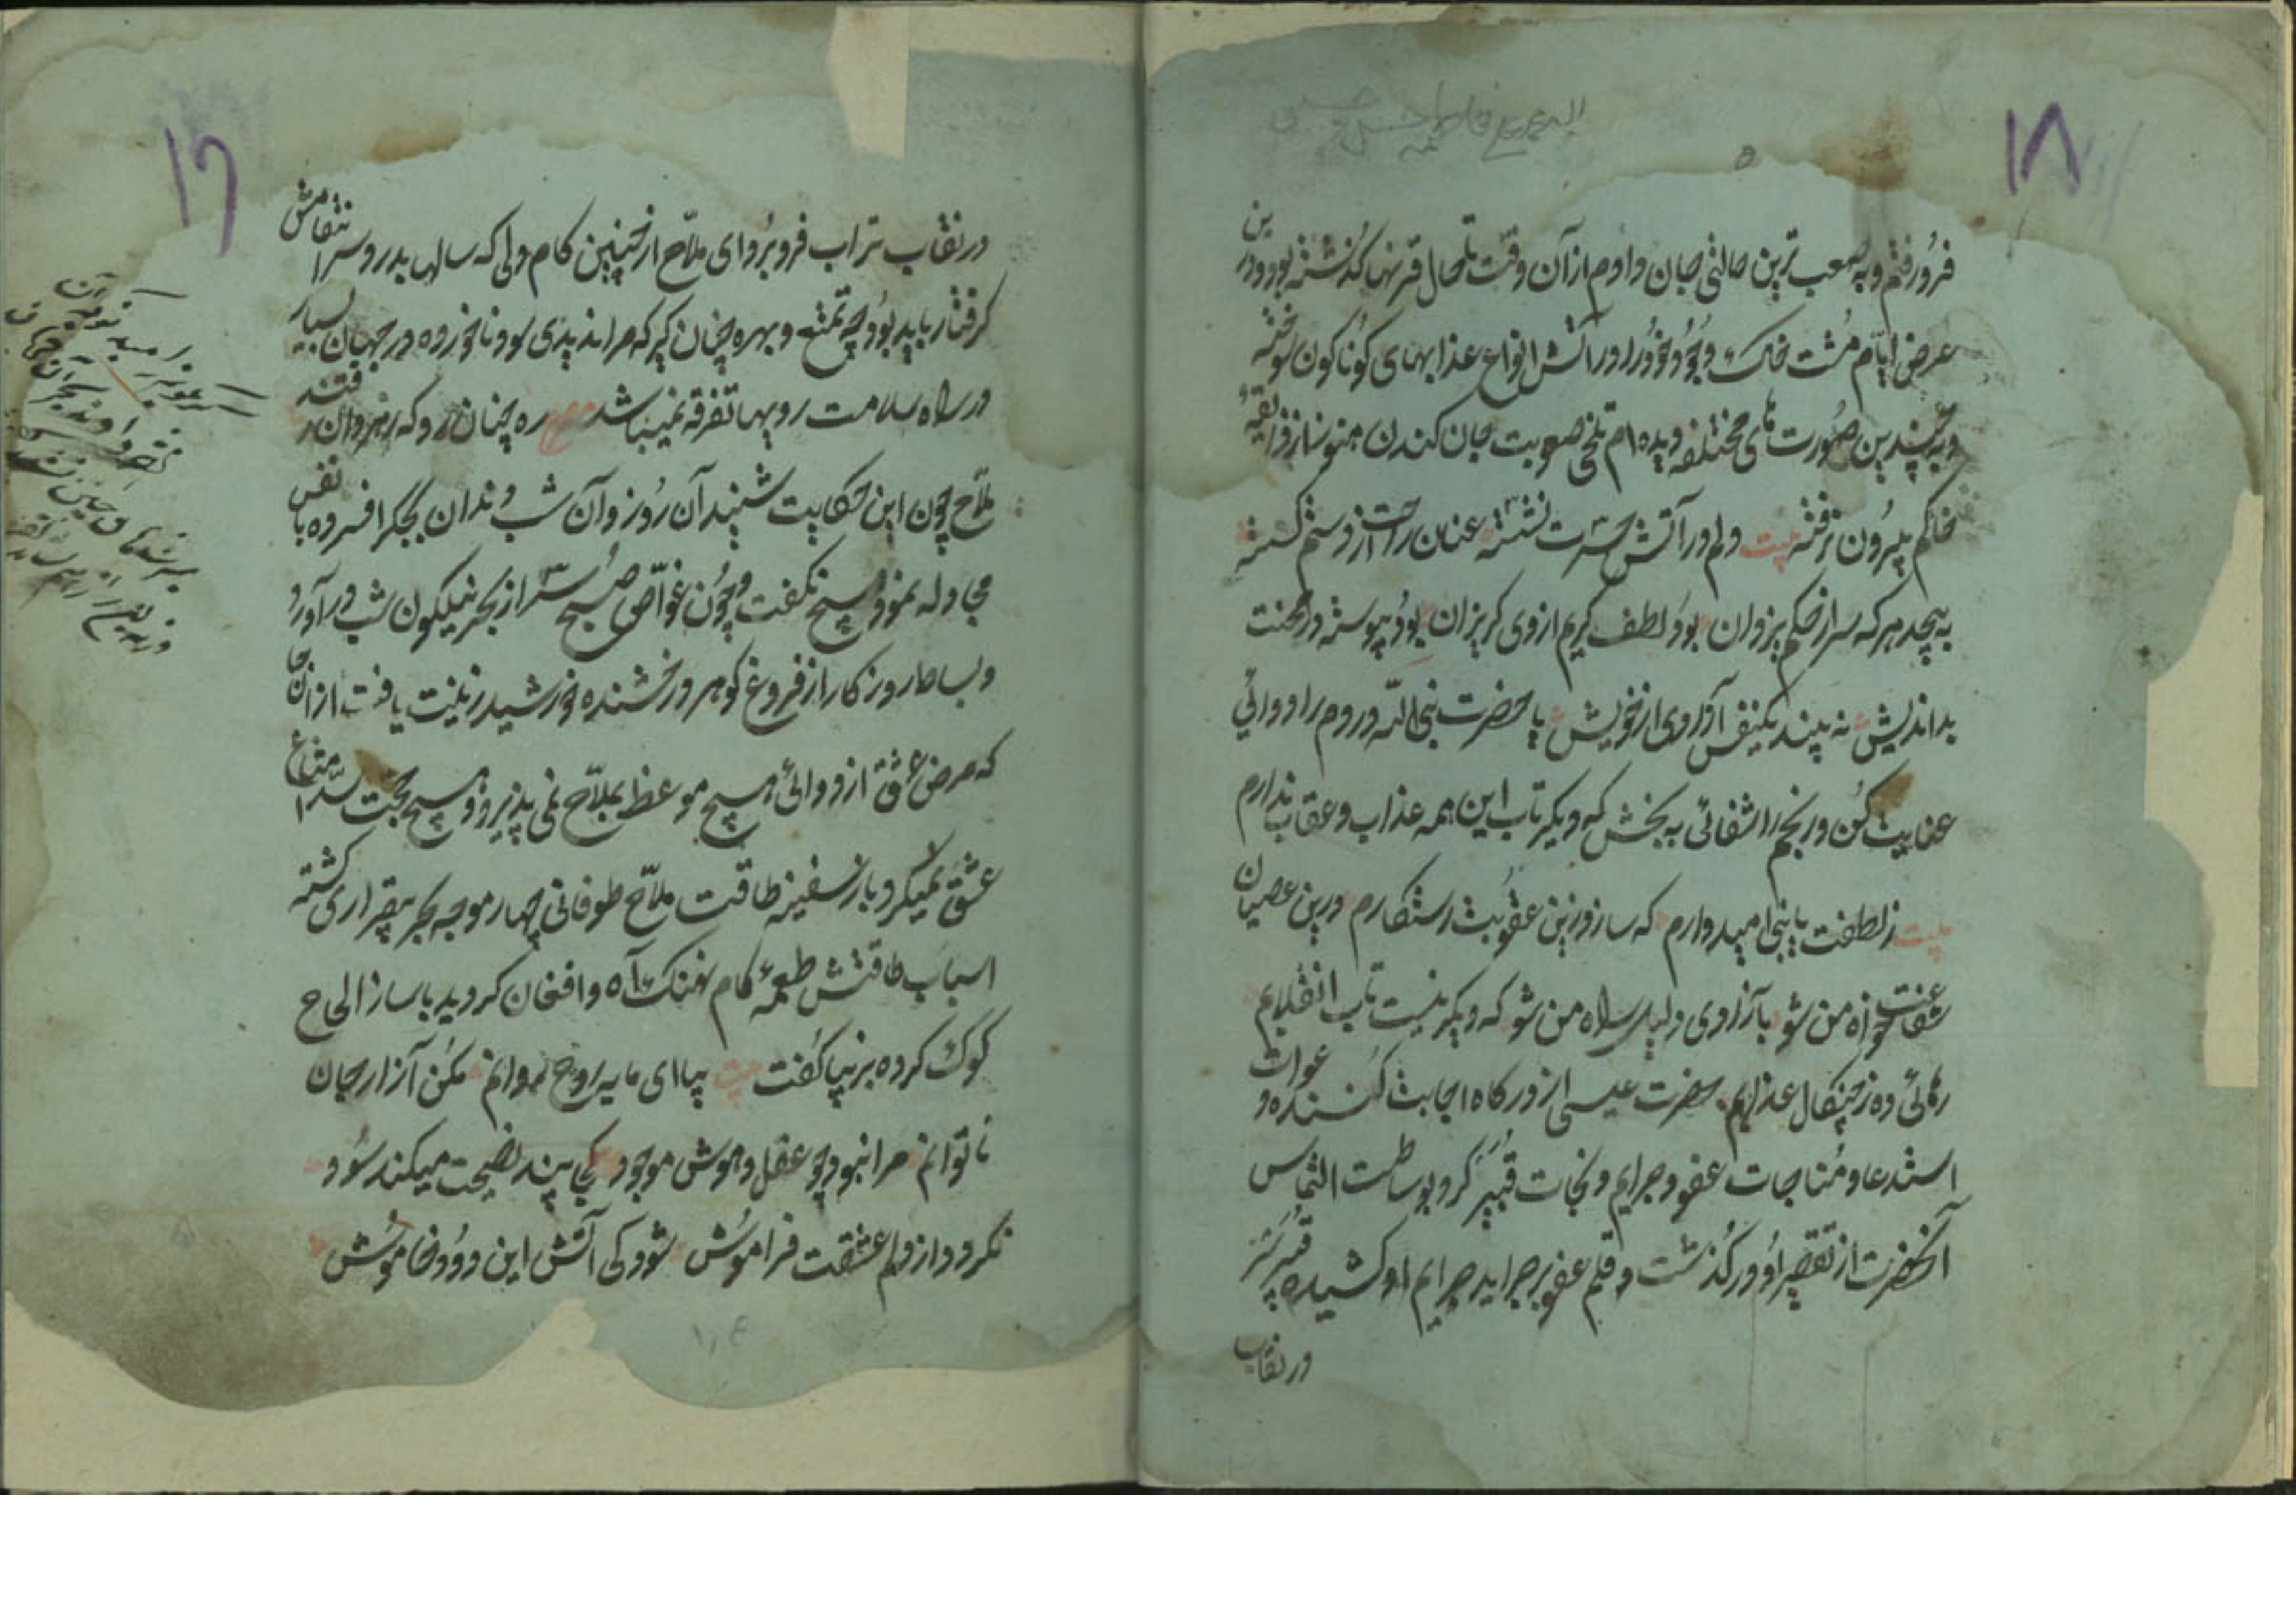 ۱۸
فرو رفتم و به صعب ترین حالتی جان دادم از آن وقت تا حال قرنها گذشته بود و درین
عرض ایام مشت خاک وجود خود را در آتش انواع عذابهای گوناگون سوخته
و به چندین صورت های مختلفه دیده ام تلخی صعوبت جان کندن هنوز از ذائقهٔ
خاکم بیرون نرفته بیت دلم در آتش حسرت نشسته عنان راحت از دستم گسسته
به پیچد هر که سر از حکم یزدان بود لطف کریم از وی گریزان بود پیوسته در محنت
بداندیش نه بیند یکنفس آزادی از خویش یا حضرت نبی الله دردم را دوائی
عنایت کن و رنجم را شفائی به بخش که دیگر تاب این همه عذاب و عقاب ندارم
بیت ز لطفت یا نبی امیدوارم که سازد زین عقوبت رستگارم درین عصیان
شفاعت خواه من شو بآزادی دلیل راه من شو که دیگر نیست تاب انقلابم
رهائی ده ز چنگال عذابم حضرت عیسی از درگاه اجابت کننده دعوات
استدعا و مناجات عفو و جرایم و نجات قیصر کرد بوساطت التماس
آنحضرت از تقصیر او در گذشت و قلم عفو بر جراید جرایم او کشیده
در نقاب
۱۹
در نقاب تراب فرو برد ای ملاح از چنین کام دلی که سالها بدرد سر انتقامش
گرفتار باید بود چه تمتع و بهره چنان گیر که مرا ندیدی سود ناخورده در جهان بسیار
در راه سلامت رویها تفرقه نمیباشد مصرع ره چنان رو که رهروان رفتند
ملاح چون این حکایت شنید آن روز و آن شب دندان بجگر افسرده با نفس
مجادله نمود هیچ نگفت و چون غواص صبح سر از بحر نیلگون شب در آورد
و بساط روزگار از فروغ گوهر درخشنده خورشید زینت یافت از آنجا
که مرض عشق از دوائی هیچ موعظ بملاح نمی پذیرد و هیچ حجت سد متاع
عشق نمیکرد باز سفینه طاقت ملاح طوفانی چهار موجه بحر بیقراری گشته
اسباب طاقتش طعمهٔ کام نهنگ آه و افغان گردید با ساز الحاح
کوک کرده بزیبا گفت بیت بیا ای مایه روح روانم مکن آزار جان
ناتوانم مرا نبود چو عقل و هوش موجود کجا پند نصیحت میکند سود
نگردد از دلم عشقت فراموش شود کی آتش این دود خاموش